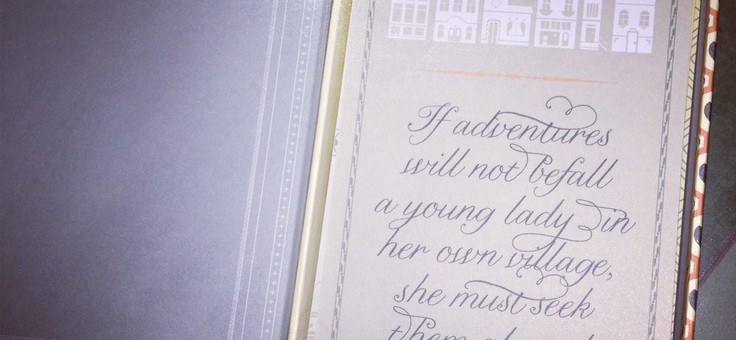 If adventures
will not befall
a young lady in
her own village,
she must seek